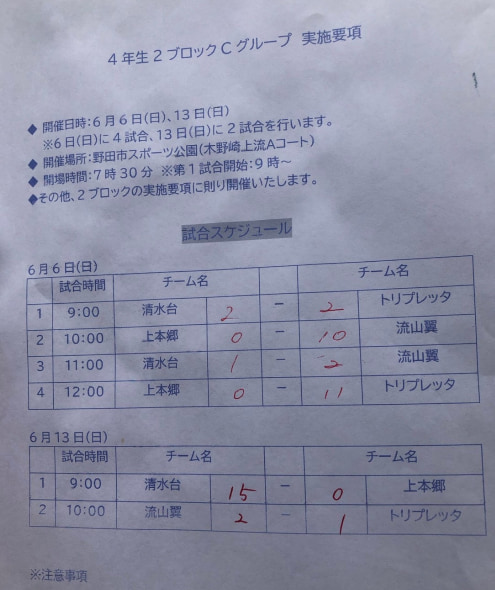 4年生2ブロックCグループ 実施要項
◆ 開催日時：6月6日(日)、13日(日)
※6日(日)に4試合、13日(日)に2試合を行います。
◆ 開催場所：野田市スポーツ公園(木野崎上流Aコート)
◆ 開場時間：7時30分 ※第1試合開始：9時～
◆その他、2ブロックの実施要項に則り開催いたします。
試合スケジュール
6月6日(日)
試合時間 チーム名 チーム名
1 9:00 清水台 2 － 2 トリプレッタ
2 10:00 上本郷 0 － 10 流山翼
3 11:00 清水台 1 － 2 流山翼
4 12:00 上本郷 0 － 11 トリプレッタ
6月13日(日)
試合時間 チーム名 チーム名
1 9:00 清水台 15 － 0 上本郷
2 10:00 流山翼 2 － 1 トリプレッタ
※注意事項